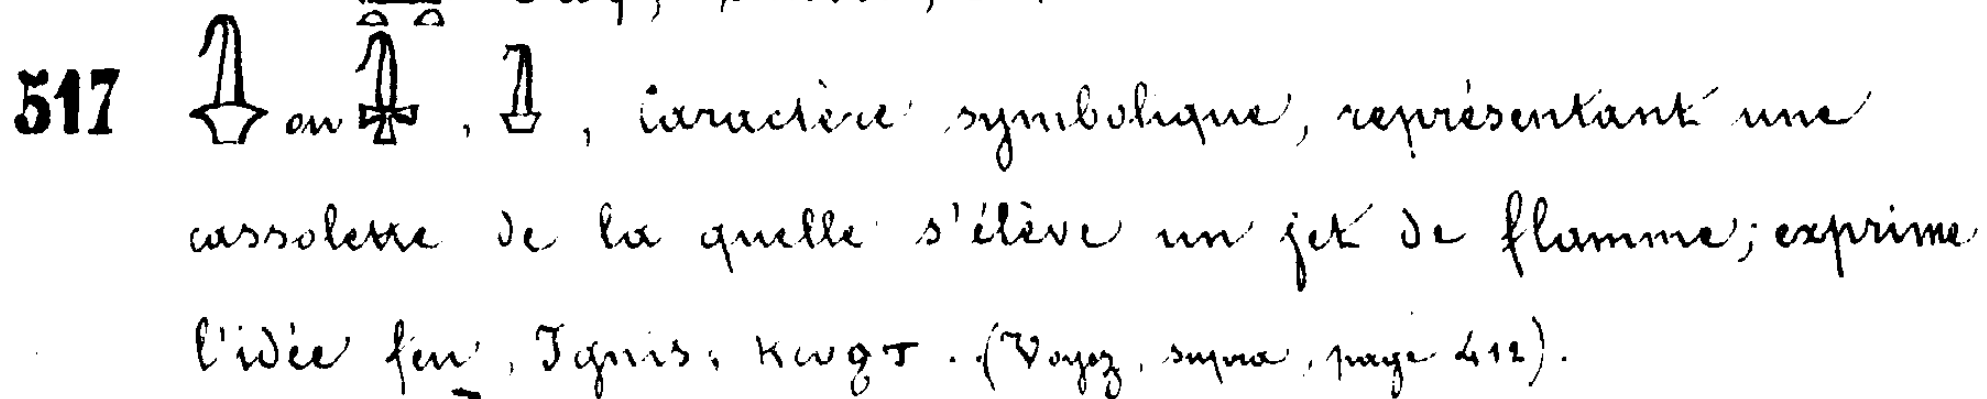 517 ou , , Caractère symbolique, représentant une
cassolette de la quelle s'élève un jet de flamme; exprime
l'idée feu, Ignis, ⲕⲱϩⲧ. (Voyez, supra, page 412).